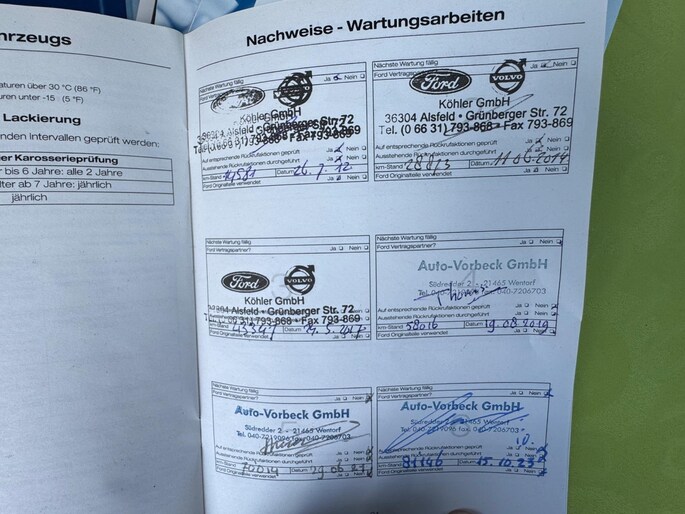 hrzeugs
aturen über 30 °C (86 °F)
uren unter -15 (5 °F)
Lackierung
nden Intervallen geprüft werden:
er Karosserieprüfung
er bis 6 Jahre: alle 2 Jahre
lter ab 7 Jahre: jährlich
jährlich
Nachweise - Wartungsarbeiten
Nächste Wartung fällig
Ja Nein
Ford Vertragspartner?
Köhler GmbH
36304 Alsfeld • Grünberger Str. 72
Auf entsprechende Rückrufaktionen geprüft
Ausstehende Rückrufaktionen durchgeführt
km-Stand Datum 26.7.12
Ford Originalteile verwendet Ja Nein
Nächste Wartung fällig
Ja Nein
Ford VOLVO
Köhler GmbH
36304 Alsfeld • Grünberger Str. 72
Tel. (0 66 31) 793-868 • Fax 793-869
Auf entsprechende Rückrufaktionen geprüft
Ausstehende Rückrufaktionen durchgeführt
km-Stand Datum 11.06.2014
Ford Originalteile verwendet Ja Nein
Nächste Wartung fällig
Ford Vertragspartner? Ja Nein
Ford VOLVO
Köhler GmbH
36304 Alsfeld • Grünberger Str. 72
Tel. (0 66 31) 793-868 • Fax 793-869
km-Stand Datum
Ford Originalteile verwendet Ja Nein
Nächste Wartung fällig
Ford Vertragspartner? Ja Nein
Auto-Vorbeck GmbH
Südredder 2 - 21465 Wentorf
040-7206703
Auf entsprechende Rückrufaktionen geprüft Ja Nein
Ausstehende Rückrufaktionen durchgeführt Ja Nein
km-Stand 58016 Datum 19.08.2019
Ford Originalteile verwendet Ja Nein
Nächste Wartung fällig
Ford Vertragspartner? Ja Nein
Auto-Vorbeck GmbH
Südredder 2 - 21465 Wentorf
Tel. 040-7219096 fax 040-7206703
Auf entsprechende Rückrufaktionen geprüft Ja Nein
Ausstehende Rückrufaktionen durchgeführt Ja Nein
km-Stand 70014 Datum 29.06.21
Ford Originalteile verwendet Ja Nein
Nächste Wartung fällig
Ford Vertragspartner? Ja Nein
Auto-Vorbeck GmbH
Südredder 2 - 21465 Wentorf
Tel. 040-7219096 fax 040-7206703
Auf entsprechende Rückrufaktionen geprüft Ja Nein
Ausstehende Rückrufaktionen durchgeführt Ja Nein
km-Stand 81146 Datum 15.10.23
Ford Originalteile verwendet Ja Nein